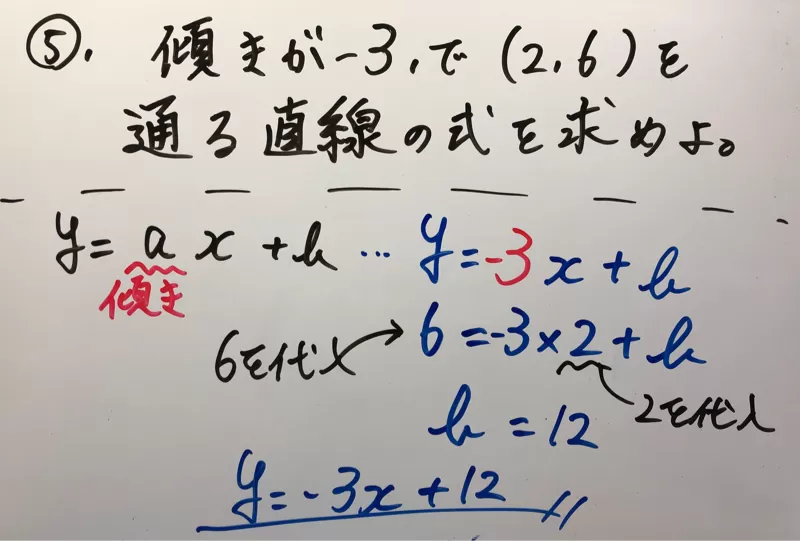 ⑤. 傾きが-3,で(2,6)を
通る直線の式を求めよ。
y=ax+b … y=-3x+b
傾き
6を代入 6=-3×2+b
2を代入
b=12
y=-3x+12